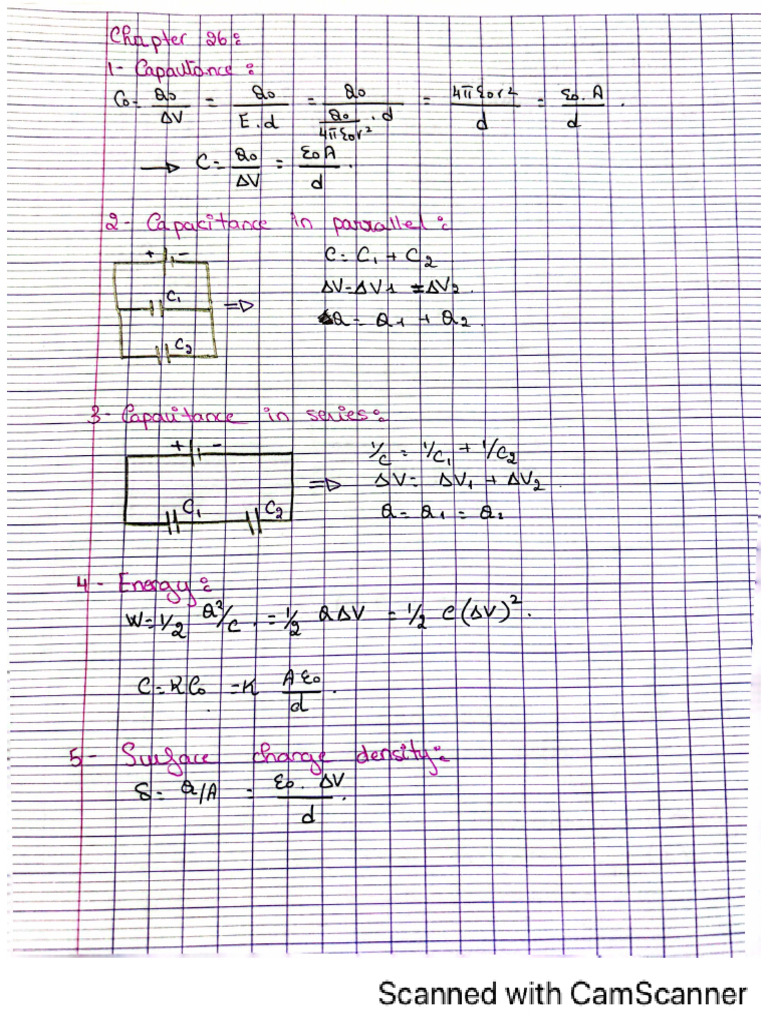 Chapter 26:
1- Capacitance:
C₀ = Q₀/ΔV = Q₀/E.d = Q₀/(Q₀/4πε₀r² . d) = 4πε₀r²/d = ε₀.A/d .
→ C = Q₀/ΔV = ε₀A/d .
2- Capacitance in parrallel:
+ -
C₁
C₂
⇒
C = C₁ + C₂
ΔV = ΔV₁ = ΔV₂ .
Q = Q₁ + Q₂ .
3- Capacitance in series:
+ -
C₁ C₂
⇒
1/C = 1/C₁ + 1/C₂
ΔV = ΔV₁ + ΔV₂
Q = Q₁ = Q₂
4- Energy:
W = 1/2 Q²/C . = 1/2 QΔV = 1/2 C(ΔV)² .
C = KC₀ = K Aε₀/d .
5- Surface charge density:
δ = Q/A = ε₀. ΔV/d .
Scanned with CamScanner